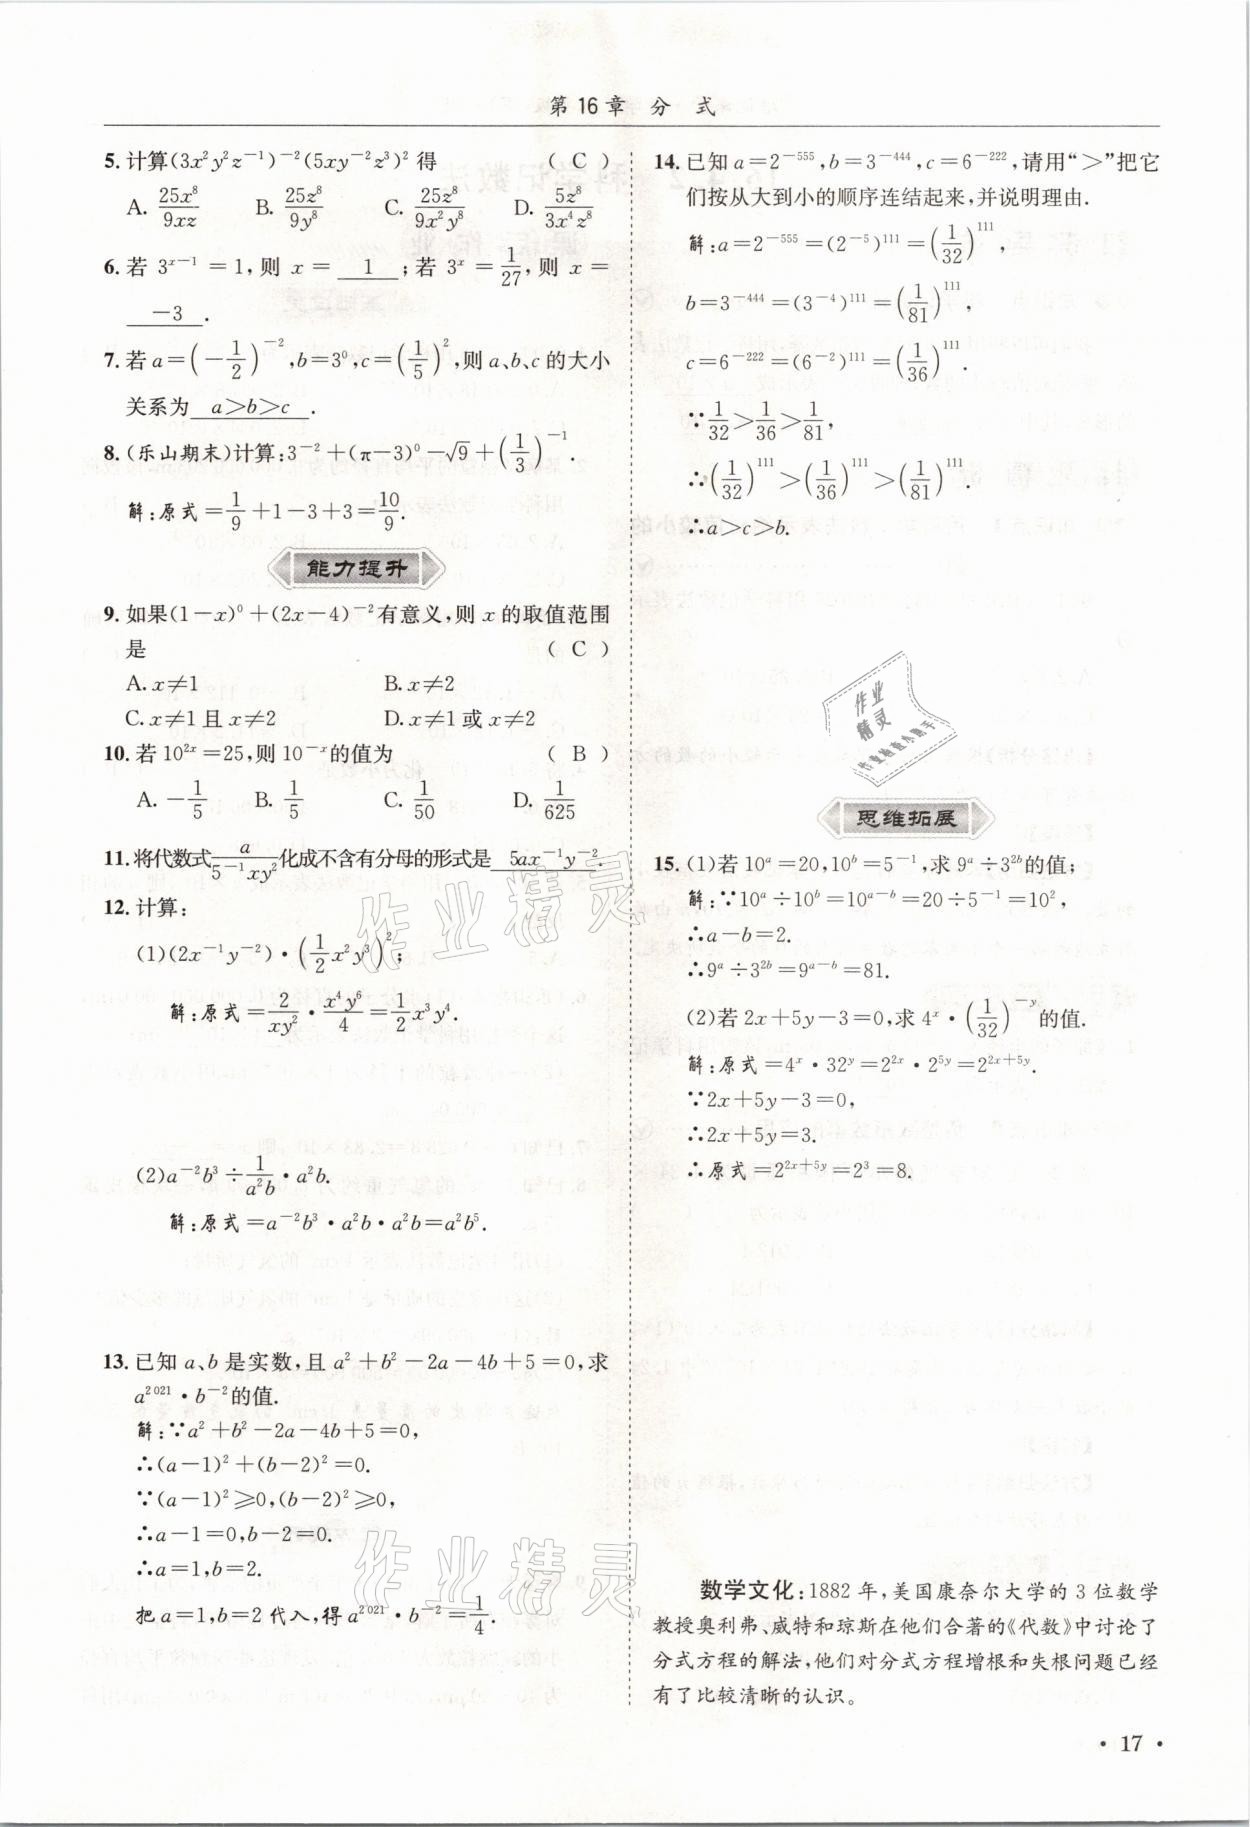 第16章 分 式
5.计算(3x²y²z⁻¹)⁻²(5xy⁻²z³)²得 ( C )
A. 25x⁸/9xz B. 25z⁸/9y⁸ C. 25z⁸/9x²y⁸ D. 5z⁸/3x⁴z⁸
6.若 3ˣ⁻¹=1,则 x= 1 ;若 3ˣ=1/27,则 x=
-3 .
7.若a=(-1/2)⁻²,b=3⁰,c=(1/5)²,则a、b、c的大小
关系为 a>b>c .
8.(乐山期末)计算:3⁻²+(π-3)⁰-√9+(1/3)⁻¹.
解:原式=1/9+1-3+3=10/9.
能力提升
9.如果(1-x)⁰+(2x-4)⁻²有意义,则x的取值范围
是 ( C )
A.x≠1 B.x≠2
C.x≠1且x≠2 D.x≠1或x≠2
10.若10²ˣ=25,则10⁻ˣ的值为 ( B )
A. -1/5 B. 1/5 C. 1/50 D. 1/625
11.将代数式 a/(5⁻¹xy²) 化成不含有分母的形式是 5ax⁻¹y⁻².
12.计算:
(1)(2x⁻¹y⁻²)·(1/2x²y³)²;
解:原式=2/xy²·x⁴y⁶/4=1/2x³y⁴.
(2)a⁻²b³÷1/a²b·a²b.
解:原式=a⁻²b³·a²b·a²b=a²b⁵.
13.已知a、b是实数,且a²+b²-2a-4b+5=0,求
a²⁰²¹·b⁻²的值.
解:∵a²+b²-2a-4b+5=0,
∴(a-1)²+(b-2)²=0.
∵(a-1)²≥0,(b-2)²≥0,
∴a-1=0,b-2=0.
∴a=1,b=2.
把a=1,b=2代入,得a²⁰²¹·b⁻²=1/4.
14.已知a=2⁻⁵⁵⁵,b=3⁻⁴⁴⁴,c=6⁻²²²,请用“>”把它
们按从大到小的顺序连结起来,并说明理由.
解:a=2⁻⁵⁵⁵=(2⁻⁵)¹¹¹=(1/32)¹¹¹,
b=3⁻⁴⁴⁴=(3⁻⁴)¹¹¹=(1/81)¹¹¹,
c=6⁻²²²=(6⁻²)¹¹¹=(1/36)¹¹¹.
∵1/32>1/36>1/81,
∴(1/32)¹¹¹>(1/36)¹¹¹>(1/81)¹¹¹.
∴a>c>b.
作业
精灵
思维拓展
15.(1)若10ᵃ=20,10ᵇ=5⁻¹,求9ᵃ÷3²ᵇ的值;
解:∵10ᵃ÷10ᵇ=10ᵃ⁻ᵇ=20÷5⁻¹=10²,
∴a-b=2.
∴9ᵃ÷3²ᵇ=9ᵃ⁻ᵇ=81.
(2)若2x+5y-3=0,求4ˣ·(1/32)⁻ʸ的值.
解:原式=4ˣ·32ʸ=2²ˣ·2⁵ʸ=2²ˣ⁺⁵ʸ.
∵2x+5y-3=0,
∴2x+5y=3.
∴原式=2²ˣ⁺⁵ʸ=2³=8.
数学文化:1882年,美国康奈尔大学的3位数学
教授奥利弗、威特和琼斯在他们合著的《代数》中讨论了
分式方程的解法,他们对分式方程增根和失根问题已经
有了比较清晰的认识。
·17·
作业精灵
作业精灵